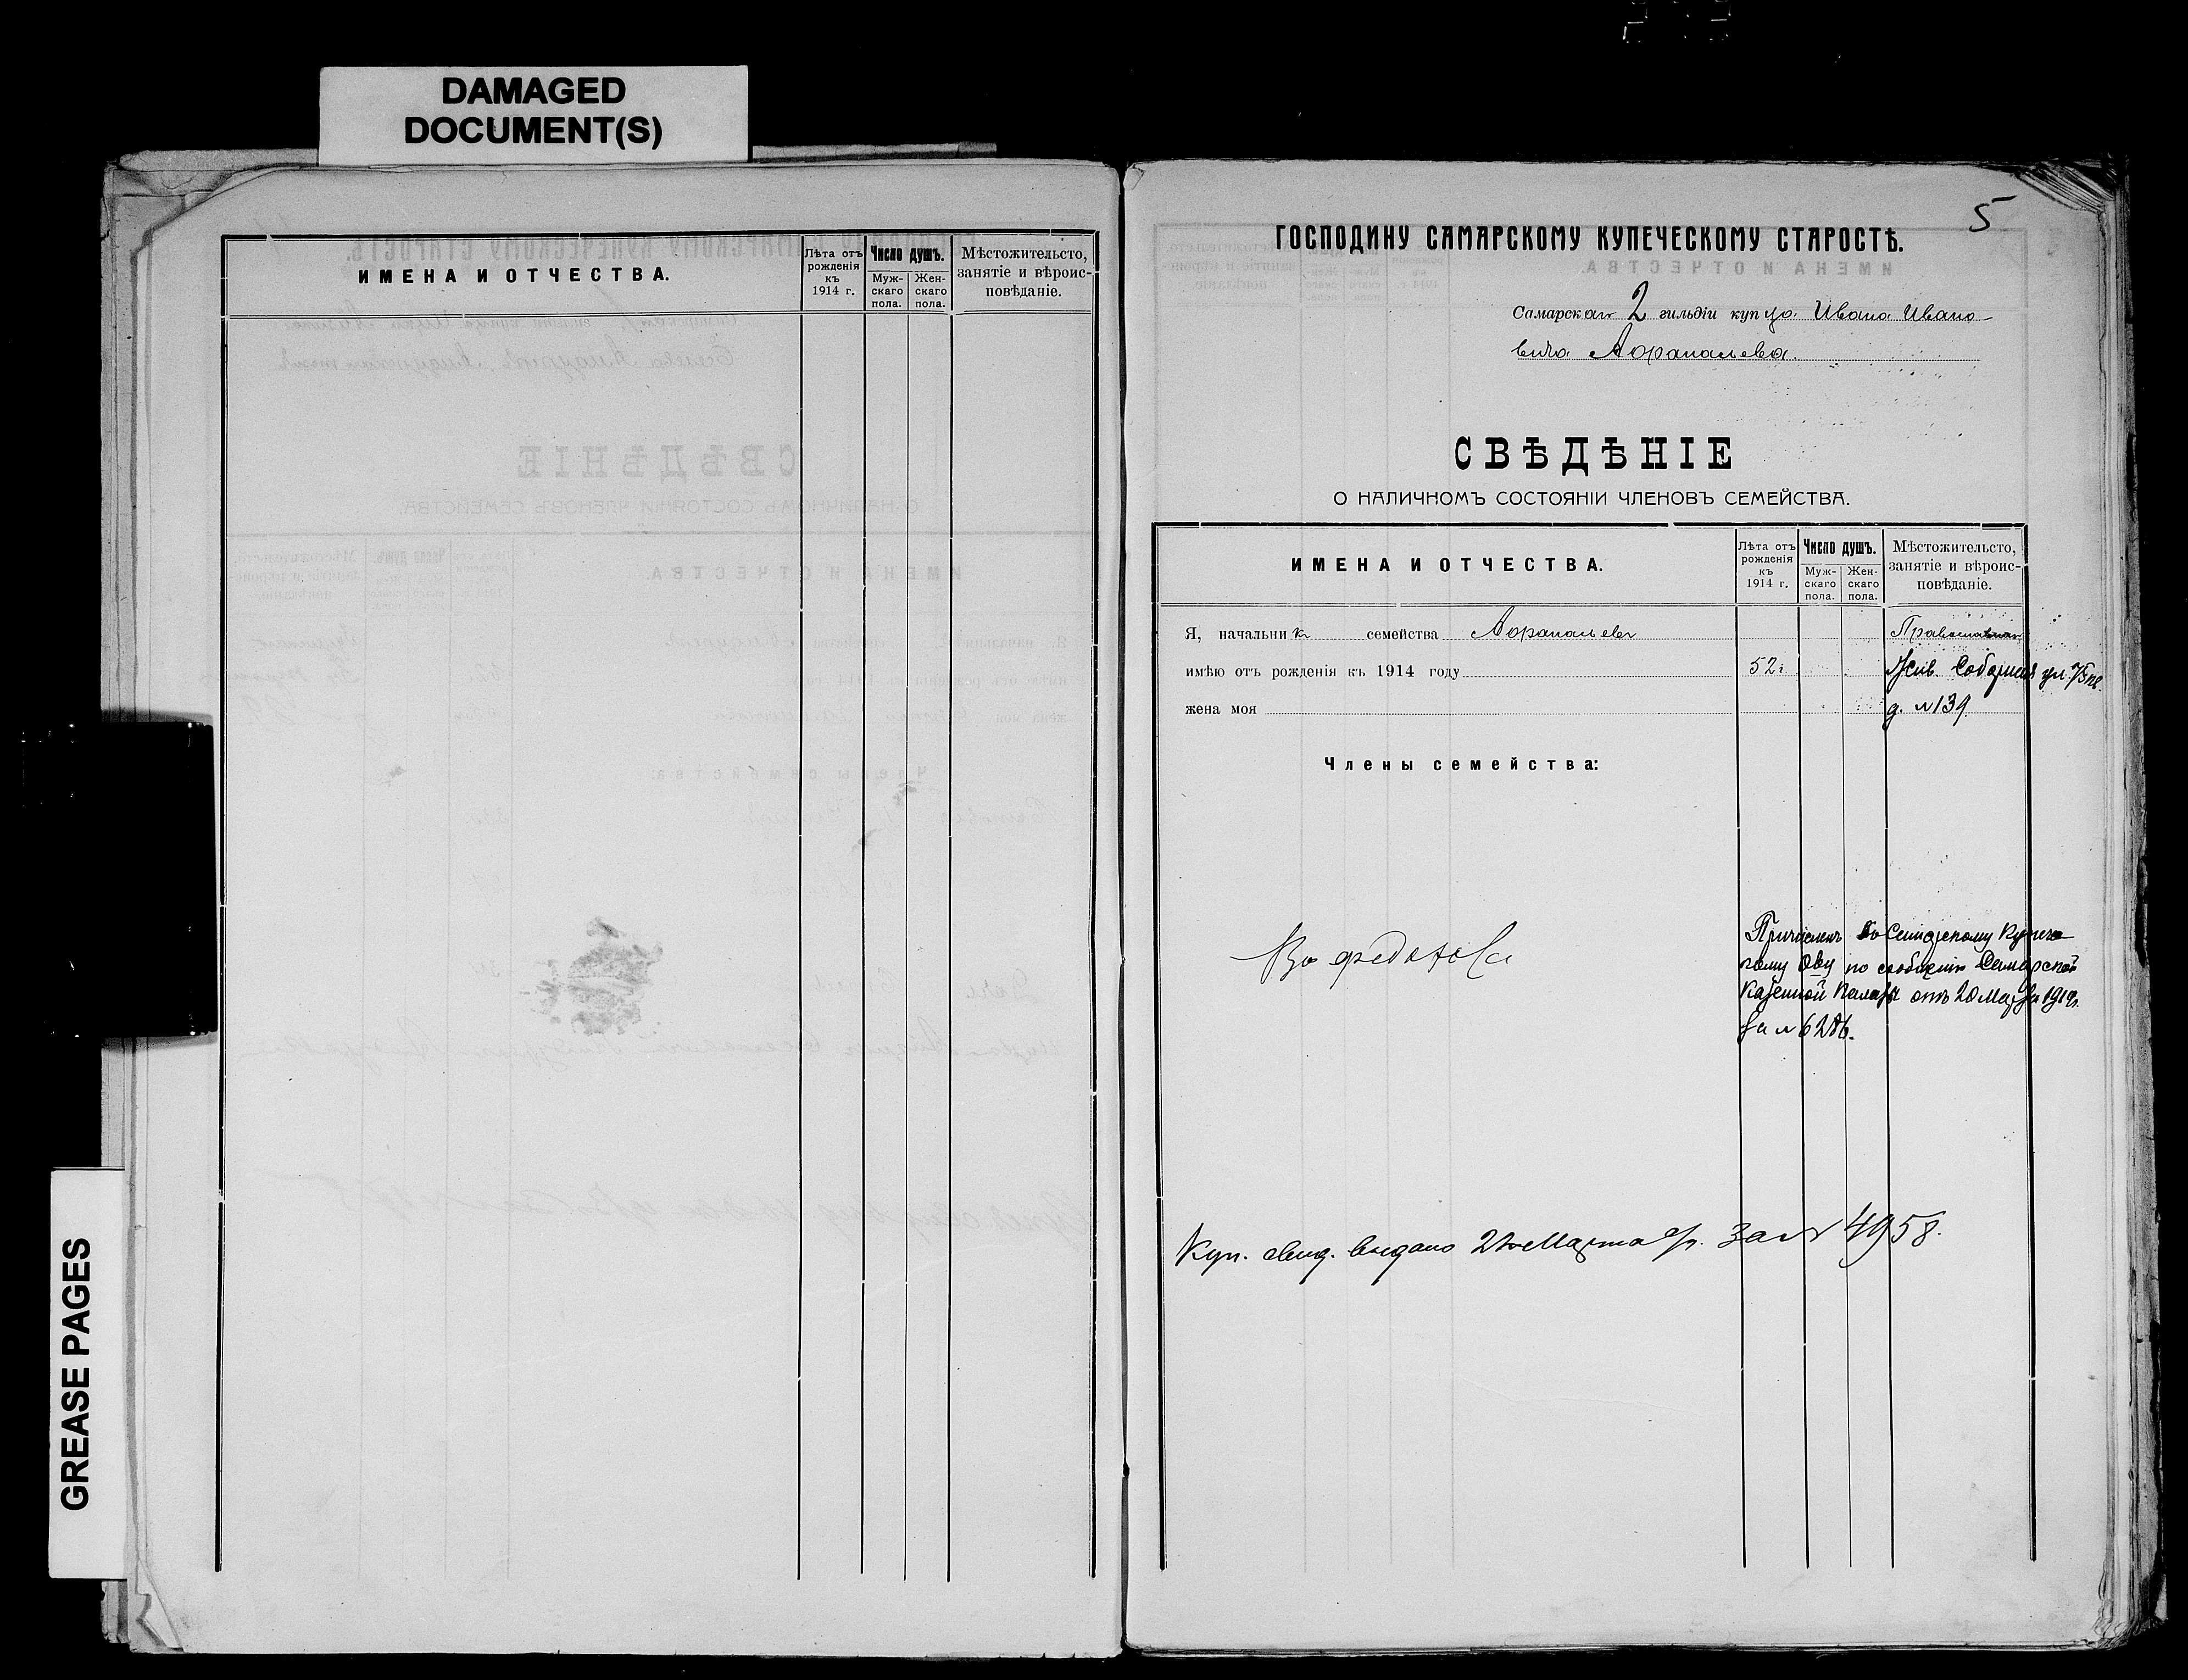 DAMAGED
DOCUMENT(S)
GREASE PAGES
ИМЕНА И ОТЧЕСТВА.
Лѣта отъ рожденія къ 1914 г.
Число душъ.
Муж-скаго пола.
Жен-скаго пола.
Мѣстожительсто,
занятіе и вѣроис-
повѣданіе.
5
ГОСПОДИНУ САМАРСКОМУ КУПЕЧЕСКОМУ СТАРОСТѢ.
Самарскаго 2 гильдіи купца Ивана Ивано-
вича
СВѢДѢНІЕ
О НАЛИЧНОМЪ СОСТОЯНІИ ЧЛЕНОВЪ СЕМЕЙСТВА.
ИМЕНА И ОТЧЕСТВА.
Лѣта отъ рожденія къ 1914 г.
Число душъ.
Муж-скаго пола.
Жен-скаго пола.
Мѣстожительсто,
занятіе и вѣроис-
повѣданіе.
Я, начальник семейства
имѣю отъ рожденія къ 1914 году 52
жена моя
Жив. Соборная ул.
д. № 139
Члены семейства:
Причисленъ къ Самарскому Купече
скому О-ву по сообщенію Самарской
Казенной Палаты отъ 20 Марта 1914 г.
за № 6286.
Куп. свид. выдано Марта за № 4958.